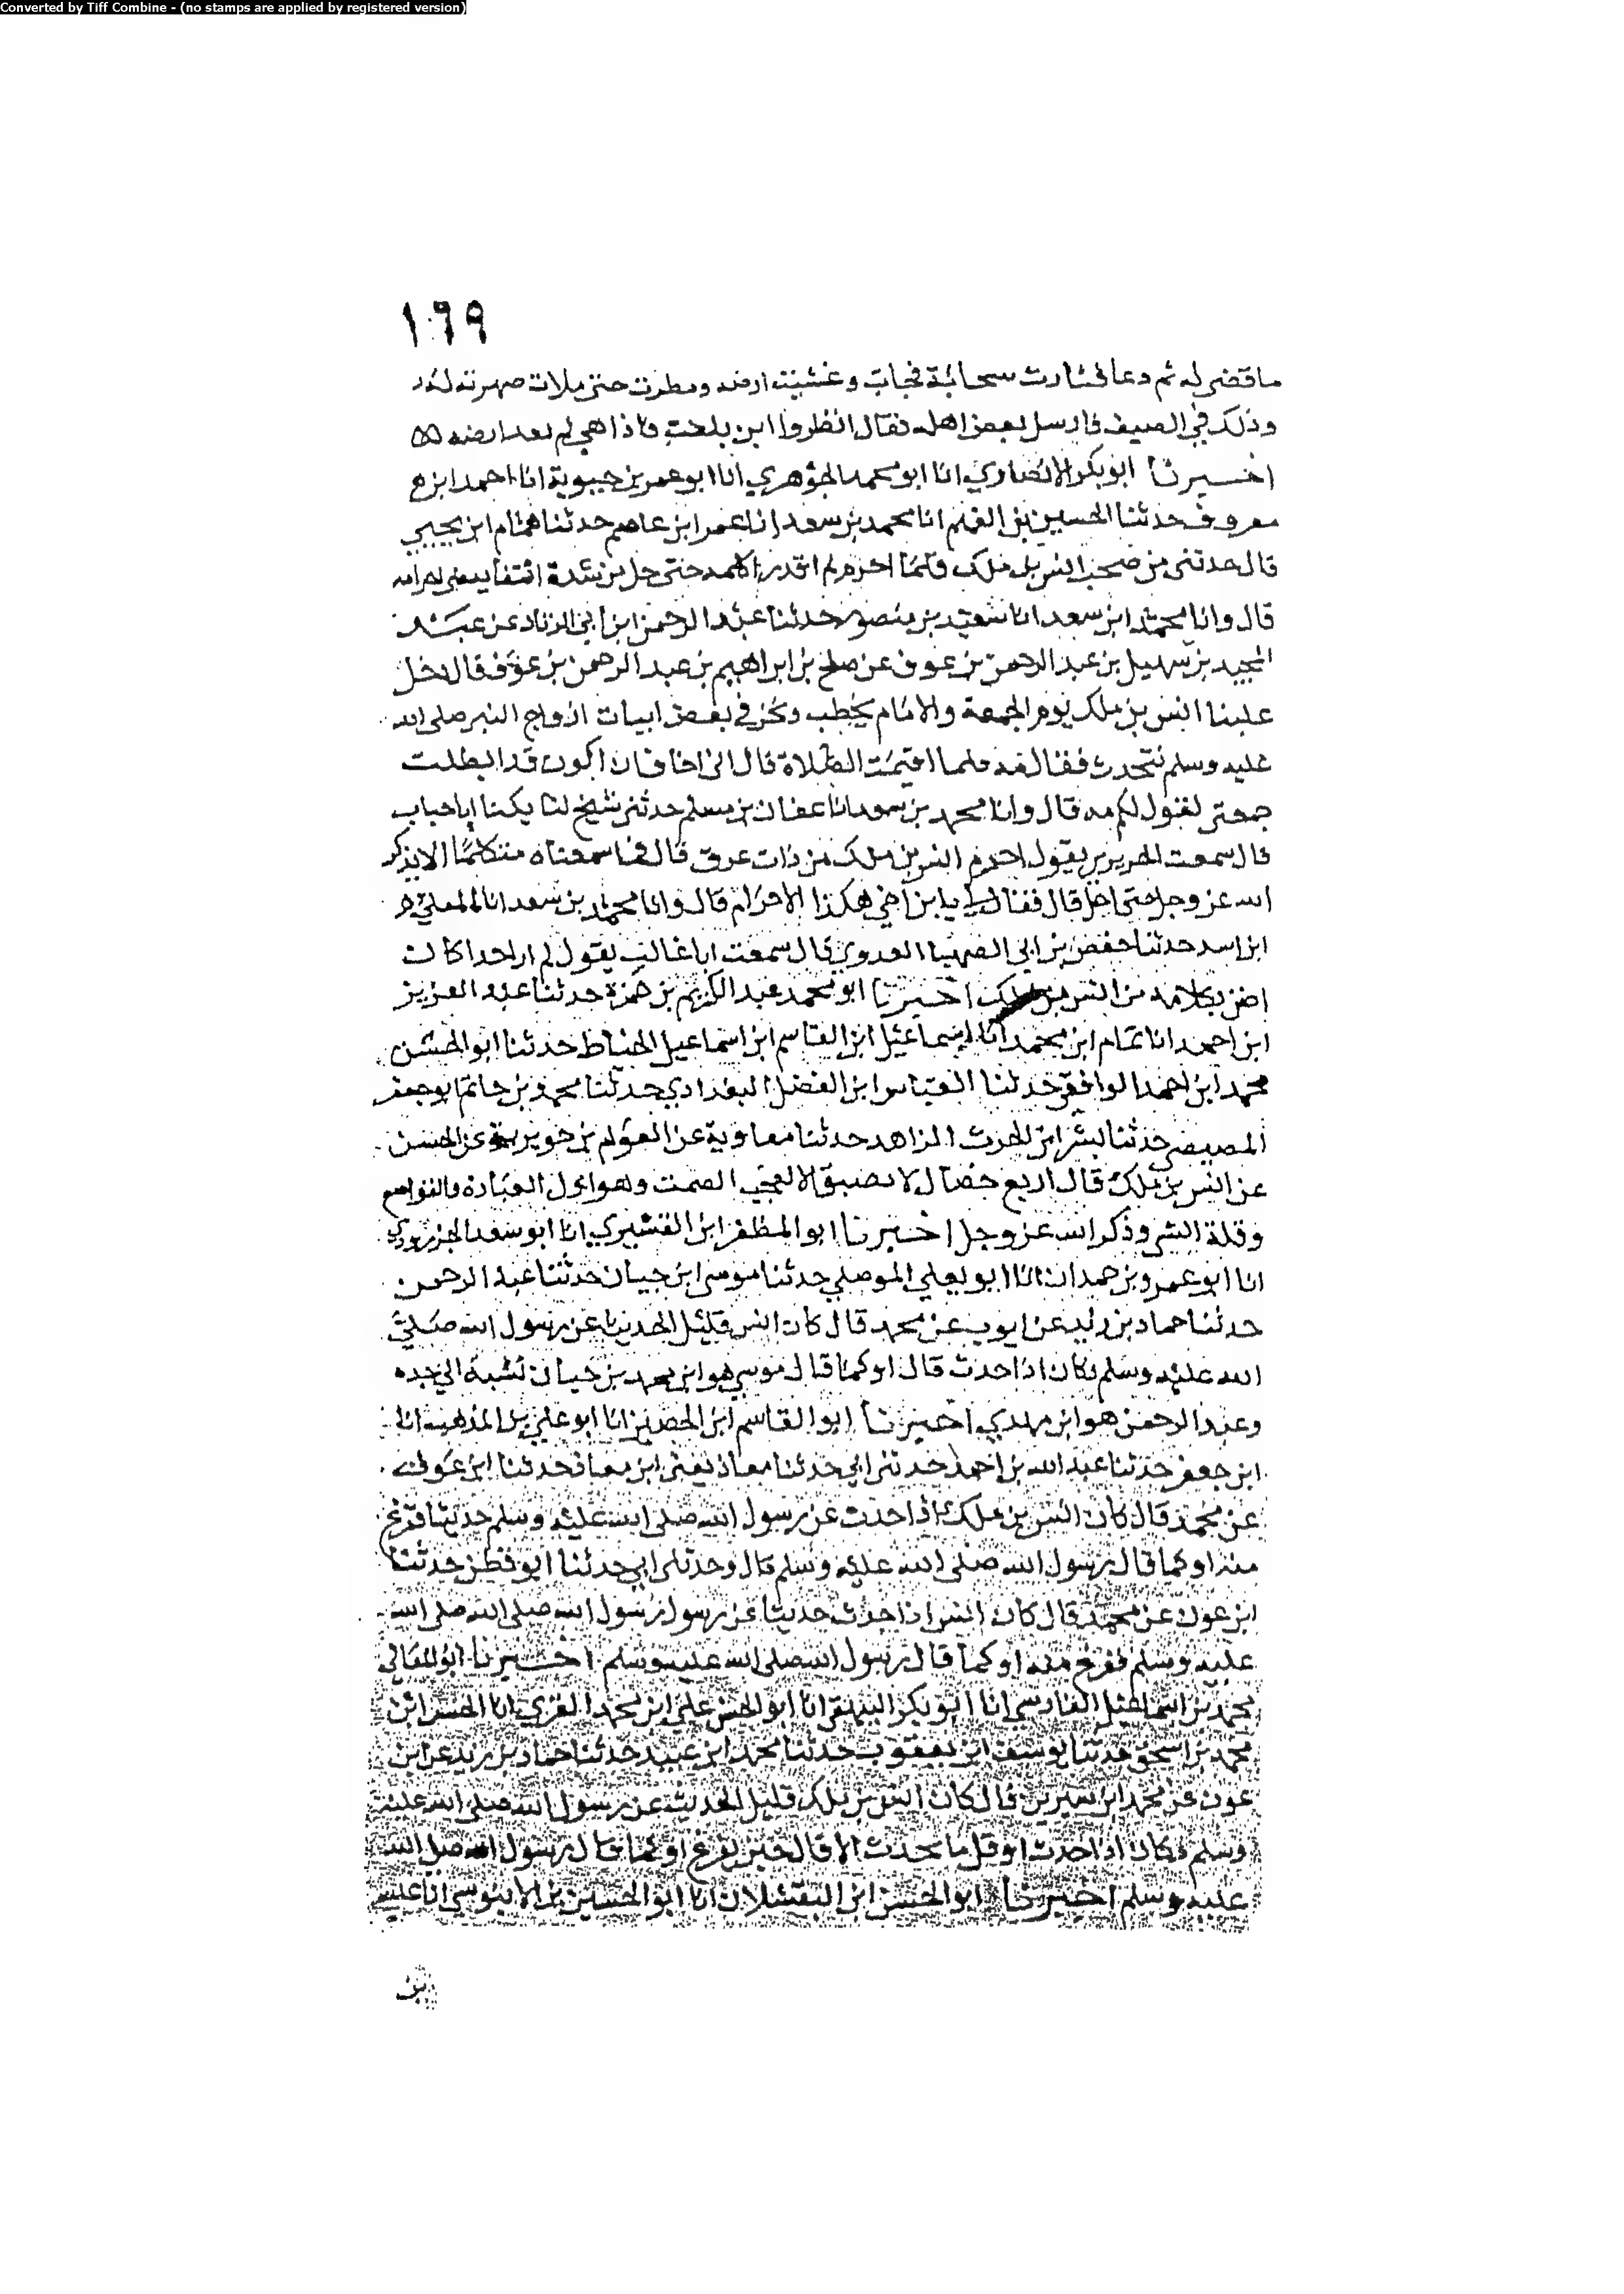 Converted by Tiff Combine - (no stamps are applied by registered version)
١٦٩
ما قضي له ثم دعا فثارت سحابة فجات وغشيت ارضه ومطرت حتى ملات صهريجه
وذلك في الصيف فارسل بعض اهله فقال انظروا اين بلغت فاذا هي لم تعد ارضه
اخبرنا ابو بكر الانصاري انا ابو محمد الجوهري انا ابو عمر بن حيوية انا احمد ابن
معروف حدثنا الحسين بن الفهم انا محمد بن سعد انا عمر ابن عاصم حدثنا همام ابن يحيي
قال حدثني من صحب انس بن ملك قال لما احرم لم اقدر اكلمه حتى حل من شدة
قال وانا محمد ابن سعد انا سعيد بن منصور حدثنا عبد الرحمن ابن ابي الزناد عن عبد
المجيد بن سهيل بن عبد الرحمن بن عوف عن صلح بن ابراهيم بن عبد الرحمن بن عوف قال دخل
علينا انس بن ملك يوم الجمعة والامام يخطب ونحن في بعض ابيات ازواج النبي صلى الله
عليه وسلم نتحدث فقال مه فلما اقيمت الصلاة قال اني اخاف ان اكون قد ابطلت
جمعتي لقولي لكم مه قال وانا محمد بن سعد انا عفان بن مسلم حدثني شيخ لنا يكنا ابا حباب
قال سمعت الجريري يقول احرم انس بن ملك من ذات عرق قال فما سمعناه متكلما الا بذكر
الله عز وجل حتى احل قال فقال لي يا ابن اخي هكذا الاحرام قال وانا محمد بن سعد انا المعلي
ابن اسد حدثنا حفص بن ابي الصهبا العدوي قال سمعت ابا غالب يقول لم ار احدا كان
اضن بكلامه من انس بن ملك اخبرنا ابو محمد عبد الكريم بن حمزة حدثنا عبد العزيز
ابن احمد انا تمام ابن محمد انا اسماعيل ابن القاسم ابن اسماعيل الخياط حدثنا ابو الحسن
محمد ابن احمد الوافقي حدثنا العباس ابن الفضل البغدادي حدثنا محمد بن حاتم ابو جعفر
المصيصي حدثنا بشر ابن الحرث الزاهد حدثنا معاوية عن العوام بن جويرية عن الحسن
عن انس بن ملك قال اربع خصال لا تصبن الا بعجب الصمت وهو اول العبادة والتواضع
وقلة الشي وذكر الله عز وجل اخبرنا ابو المظفر ابن القشيري انا ابو سعد الجنزرودي
انا ابو عمرو بن حمدان انا ابو يعلي الموصلي حدثنا موسى ابن حيان حدثنا عبد الرحمن
حدثنا حماد بن زيد عن ايوب عن محمد قال كان انس قليل الحديث عن رسول الله صلى
الله عليه وسلم فكان اذا حدث قال او كما قال موسي هو ابن محمد بن حيان نسبة الي جده
وعبد الرحمن هو ابن مهدي اخبرنا ابو القاسم ابن الحصين انا ابو علي بن المذهب انا
ابن جعفر حدثنا عبد الله بن احمد حدثني ابي حدثنا معاذ يعني ابن معاذ حدثنا ابن عون
عن محمد قال كان انس بن ملك اذا حدث عن رسول الله صلى الله عليه وسلم حديثا ففرغ
منه او كما قال رسول الله صلى الله عليه وسلم قال وحدثني ابي حدثنا ابو قطن حدثنا
ابن عون عن محمد قال كان انس اذا حدث حديثا عن رسول رسول الله صلى الله صلى الله
عليه وسلم ففرغ منه او كما قال رسول الله صلى الله عليه وسلم اخبرنا ابو المعالي
محمد بن اسماعيل الفارسي انا ابو بكر البيهقي انا ابو الحسن علي ابن محمد المقري انا الحسن ابن
محمد بن اسحق حدثنا يوسف ابن يعقوب حدثنا محمد ابن عبيد حدثنا حماد بن زيد عن ابن
عون عن محمد ابن سيرين قال كان انس بن ملك قليل الحديث عن رسول الله صلى الله عليه
وسلم فكان اذا حدث او قل ما يحدث الا قال حين يفرغ او كما قال رسول الله صلى الله
عليه وسلم اخبرنا ابو الحسن ابن البقشلان انا ابو الحسين بن الابنوسي انا عيسي
بن